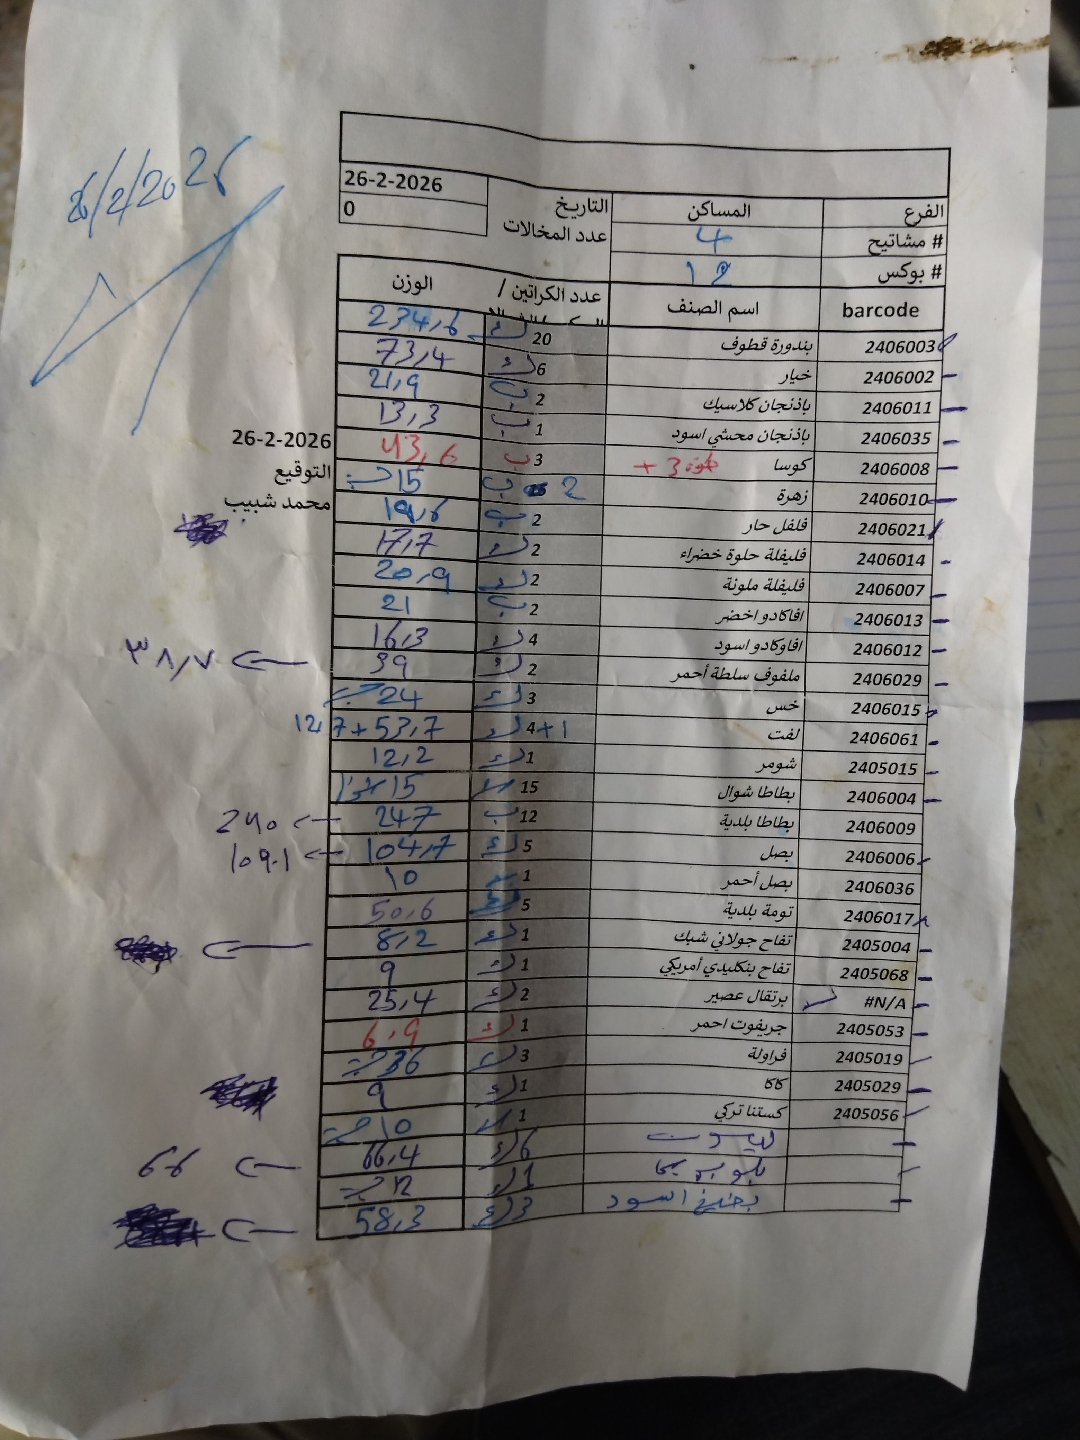 26/2/2026
الفرع المساكن التاريخ 26-2-2026
# مشاتيح 4 عدد المخالات 0
# بوكس 12
barcode اسم الصنف عدد الكراتين / الوزن
2406003 بندورة قطوف 20 ك 234,6
2406002 خيار 6 ك 73,4
2406011 باذنجان كلاسيك 2 ب 21,9
2406035 باذنجان محشي اسود 1 ب 13,3
2406008 كوسا + 3 3 ب 43,6
2406010 زهرة 2 ب 15
2406021 فلفل حار 2 ب 19,6
2406014 فليفلة حلوة خضراء 2 17,7
2406007 فليفلة ملونة 2 20,9
2406013 افاكادو اخضر 2 ب 21
2406012 افاوكادو اسود 4 16,3
2406029 ملفوف سلطة أحمر 2 39 ٣٨,٧
2406015 خس 3 ك 24
2406061 لفت 4+1 53,7 + 12,7
2405015 شومر 1 ك 12,2
2406004 بطاطا شوال 15 15
2406009 بطاطا بلدية 12 ب 247
2406006 بصل 5 ك 104,7 109.1
2406036 بصل أحمر 1 10
2406017 تومة بلدية 5 50,6
2405004 تفاح جولاني شبك 1 ك 8,2
2405068 تفاح بنكليدي أمريكي 1 ك 9
#N/A برتقال عصير 2 ك 25,4
2405053 جريفوت احمر 1 ك 6,9
2405019 فراولة 3 36
2405029 كاكا 1 ك 9
2405056 كستنا تركي 1 10
6 ك 66,4 66
1 ك 12
اسود 3 ك 58,3
26-2-2026
التوقيع
محمد شبيب